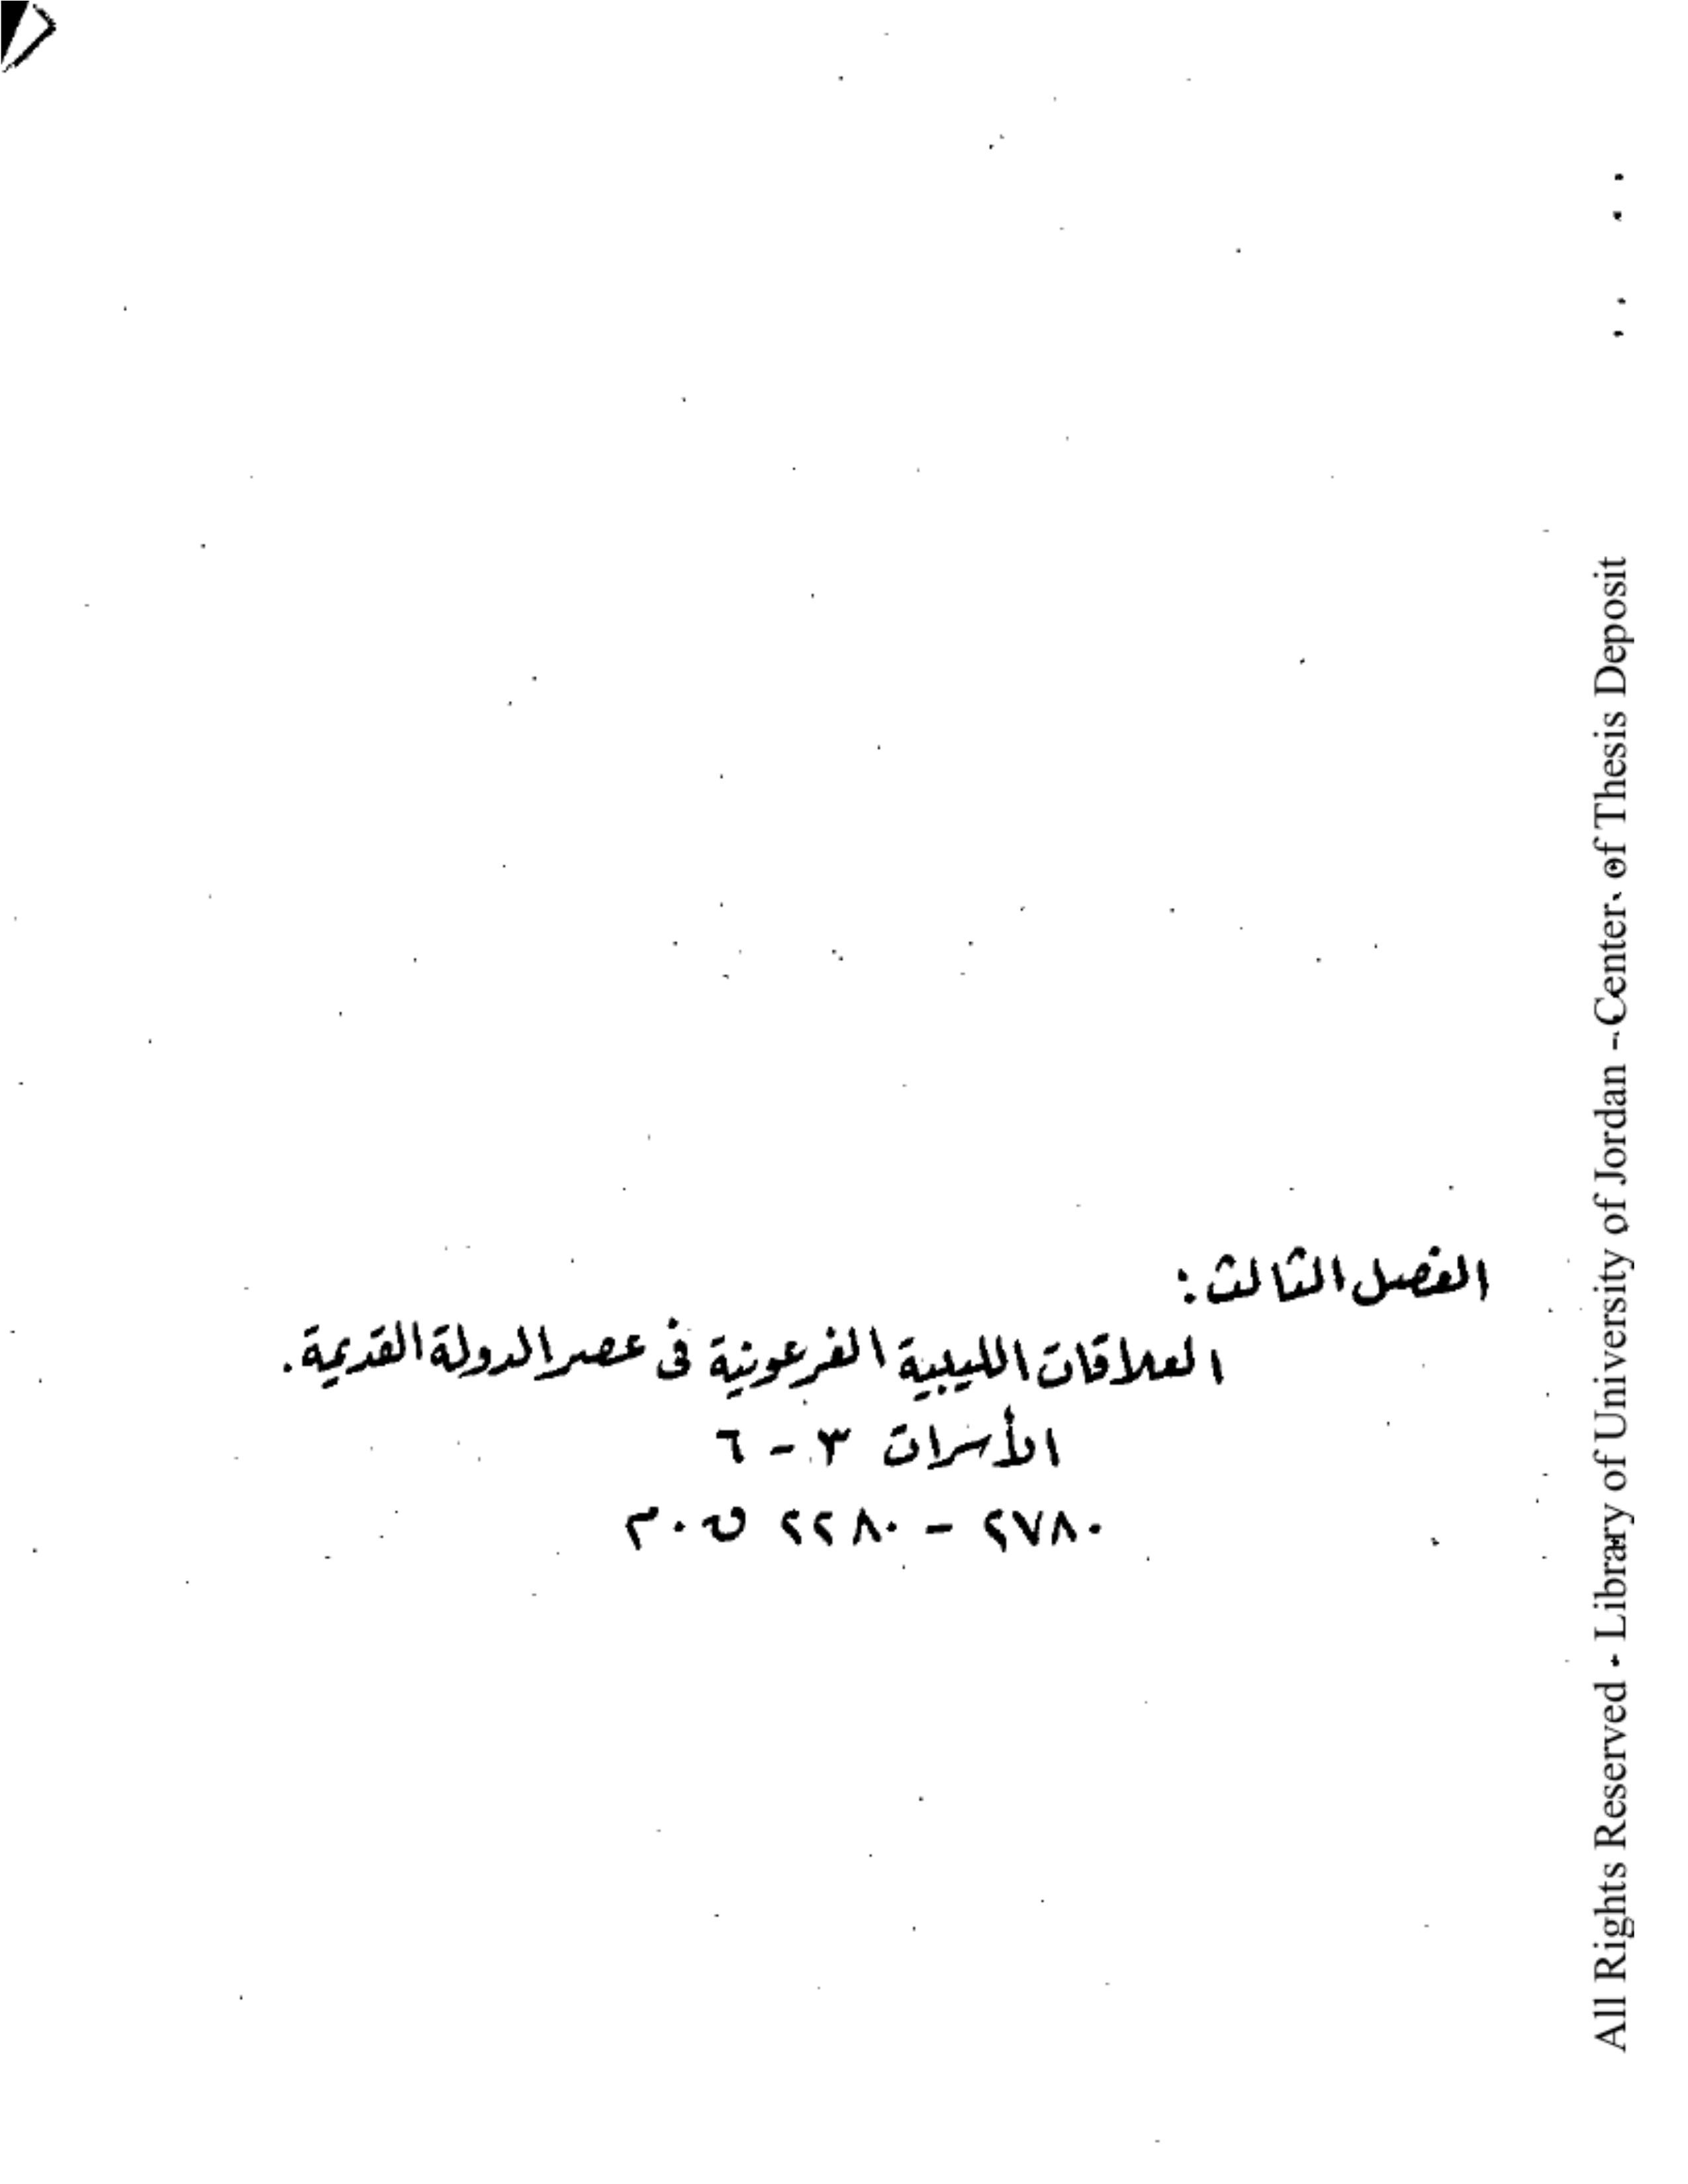 الفصل الثالث:
العلاقات الليبية الفرعونية في عصر الدولة القديمة.
الأسرات ٣ - ٦
٢٧٨٠ - ٢٢٨٠ ق.م
All Rights Reserved - Library of University of Jordan - Center of Thesis Deposit